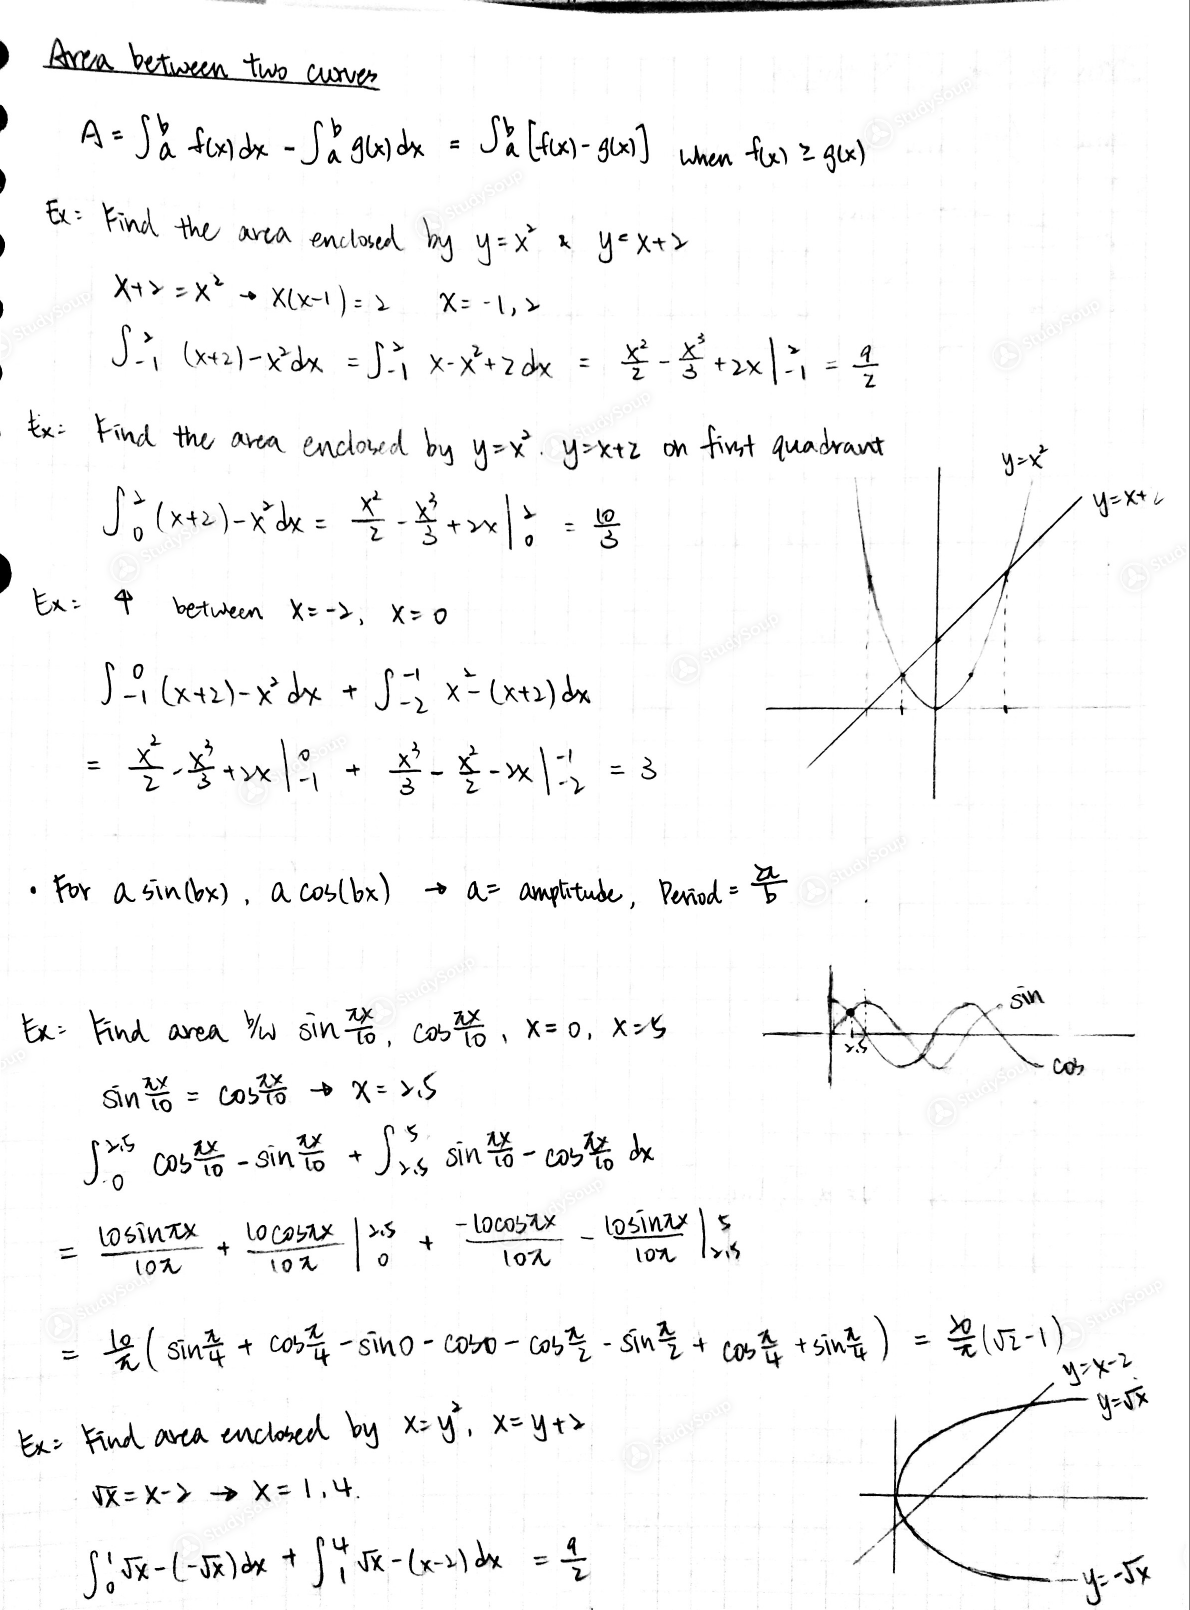 Area between two curves
A = ∫ₐᵇ f(x)dx - ∫ₐᵇ g(x)dx = ∫ₐᵇ [f(x)-g(x)] when f(x) ≥ g(x)
Ex: Find the area enclosed by y=x² & y=x+2
x+2 = x² → x(x-1)=2 x= -1, 2
∫₋₁² (x+2)-x²dx = ∫₋₁² x-x²+2dx = x²/2 - x³/3 + 2x |₋₁² = 9/2
Ex: Find the area enclosed by y=x². y=x+2 on first quadrant
∫₀² (x+2)-x²dx = x²/2 - x³/3 + 2x |₀² = 10/3
y=x²
y=x+2
Ex: ↑ between x=-2, x=0
∫₋₁⁰ (x+2)-x²dx + ∫₋₂⁻¹ x²-(x+2)dx
= x²/2 - x³/3 + 2x |₋₁⁰ + x³/3 - x²/2 - 2x |₋₂⁻¹ = 3
• For a sin(bx), a cos(bx) → a= amplitude, Period = 2π/b
Ex: Find area b/w sin πx/10, cos πx/10, x=0, x=5
sin πx/10 = cos πx/10 → x= 2.5
sin
2.5
cos
∫₀^2.5 cos πx/10 - sin πx/10 + ∫_2.5^5 sin πx/10 - cos πx/10 dx
= 10sinπx/10π + 10cosπx/10π |₀^2.5 + -10cosπx/10π - 10sinπx/10π |_2.5^5
= 10/π (sin π/4 + cos π/4 - sin0 - cos0 - cos π/2 - sin π/2 + cos π/4 + sin π/4) = 20/π (√2-1)
Ex: Find area enclosed by x=y², x=y+2
√x = x-2 → x= 1,4.
∫₀¹ √x-(-√x)dx + ∫₁⁴ √x-(x-2)dx = 9/2
y=x-2
y=√x
y=-√x
StudySoup